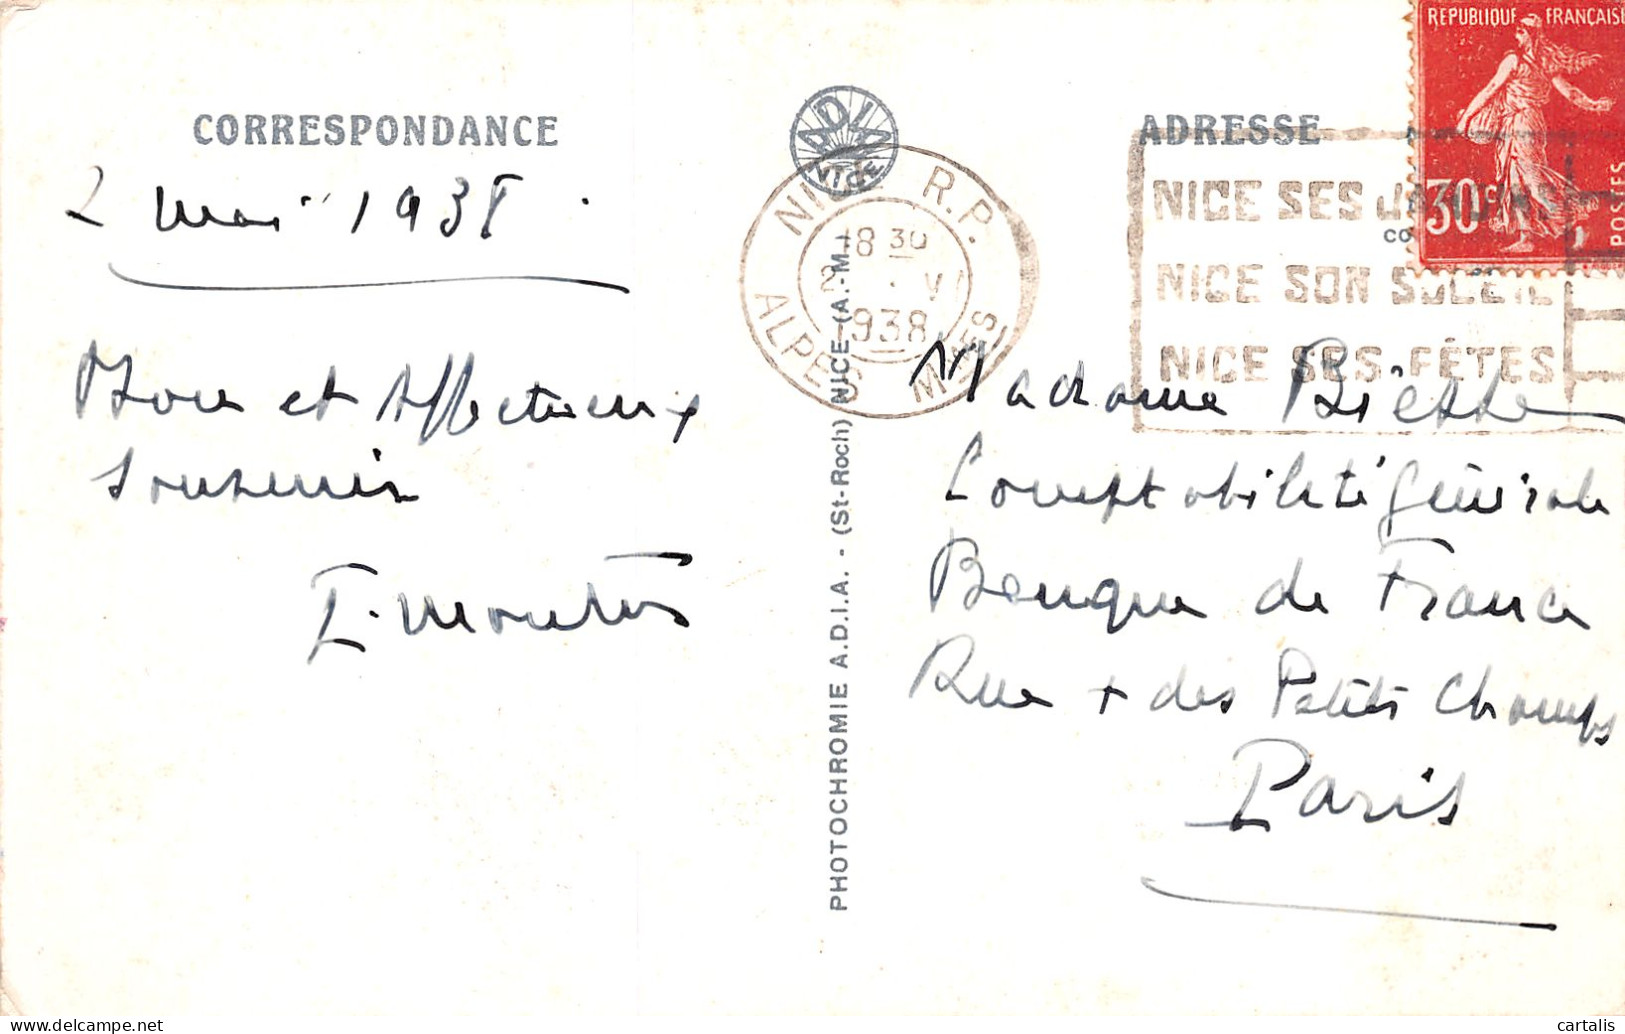 CORRESPONDANCE
2 mai 1938
Bon et Affectueux
souvenir
ADIA
NICE
NICE R.P.
18 30
2 . VI
1938
ALPES MMES
PHOTOCHROMIE A.D.I.A. - (St-Roch) NICE (A.-M.)
ADRESSE
REPUBLIQUE FRANÇAISE
30c
POSTES
NICE SES JARDINS
NICE SON SOLEIL
NICE SES FÊTES
Madame
Comptabilité Générale
Banque de France
Rue + des Petits Champs
Paris
cartalis